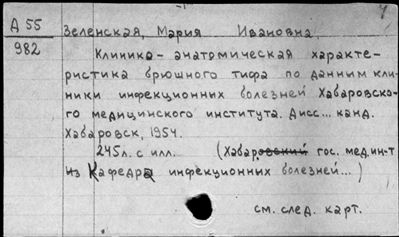 Д 55
982
Зеленская, Мария Ивановна.
Клинико-анатомическая характе-
ристика брюшного тифа по данным кли-
ники инфекционных болезней Хабаровско-
го медицинского института. Дисс... канд.
Хабаровск, 1954.
245л. с илл. (Хабаровский гос. мед.ин-т
Из Кафедра инфекционных болезней...)
см. след. карт.